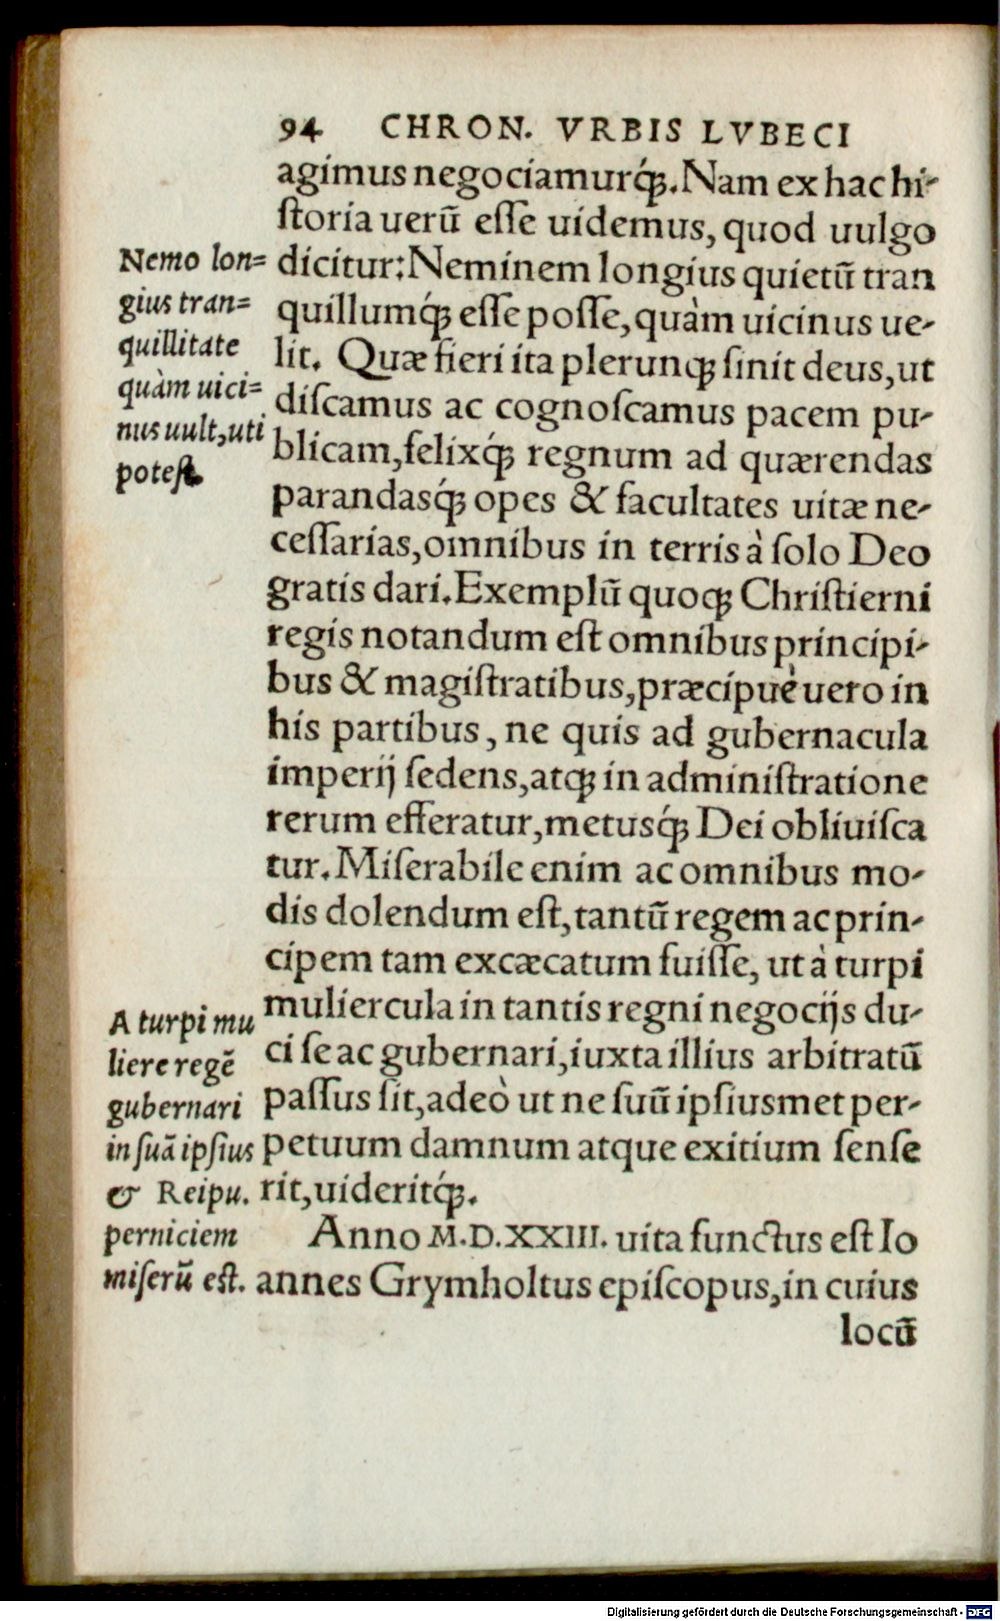 94 CHRON. VRBIS LVBECI
agimus negociamurq́;. Nam ex hac hi-
ſtoria uerũ eſſe uidemus, quod uulgo
dicitur: Neminem longius quietũ tran
quillumq́; eſſe poſſe, quàm uicinus ue-
lit. Quæ fieri ita plerunq; ſinit deus, ut
diſcamus ac cognoſcamus pacem pu-
blicam, felixq́; regnum ad quærendas
parandasq́; opes & facultates uitæ ne-
ceſſarias, omnibus in terris à ſolo Deo
gratis dari. Exemplũ quoq; Chriſtierni
regis notandum eſt omnibus principi-
bus & magiſtratibus, præcipuè uero in
his partibus, ne quis ad gubernacula
imperij ſedens, atq; in adminiſtratione
rerum efferatur, metusq́; Dei obliuiſca
tur. Miſerabile enim ac omnibus mo-
dis dolendum eſt, tantũ regem ac prin-
cipem tam excæcatum fuiſſe, ut à turpi
muliercula in tantis regni negocijs du-
ci ſe ac gubernari, iuxta illius arbitratũ
paſſus ſit, adeò ut ne ſuũ ipſiusmet per-
petuum damnum atque exitium ſenſe
rit, uideritq́;.
Anno M.D.XXIII. uita functus eſt Io
annes Grymholtus epiſcopus, in cuius
locũ
Nemo lon=
gius tran=
quillitate
quàm uici=
nus uult, uti
poteſt.
A turpi mu
liere regẽ
gubernari
in ſuã ipſius
& Reipu.
perniciem
miſerũ eſt.
Digitalisierung gefördert durch die Deutsche Forschungsgemeinschaft - DFG